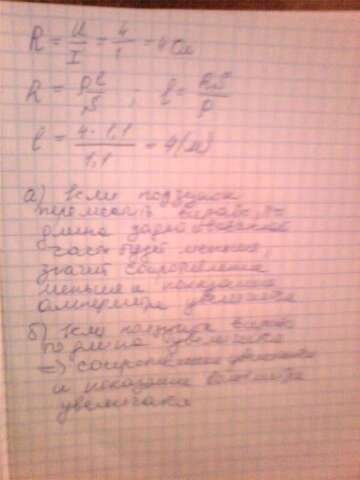 R = U/I = 4/1 = 4 Ом
R = ρl/S ; l = RS/ρ
l = 4·1,1/1,1 = 4 (м)
а) Если ползунок
переместить вправо, то
длина
часть будет меньше,
значит сопротивление
меньше и показания
амперметра увеличатся
б) Если ползунок вправо
то длина увеличится
=> сопротивление увеличится
и показания вольтметра
увеличатся